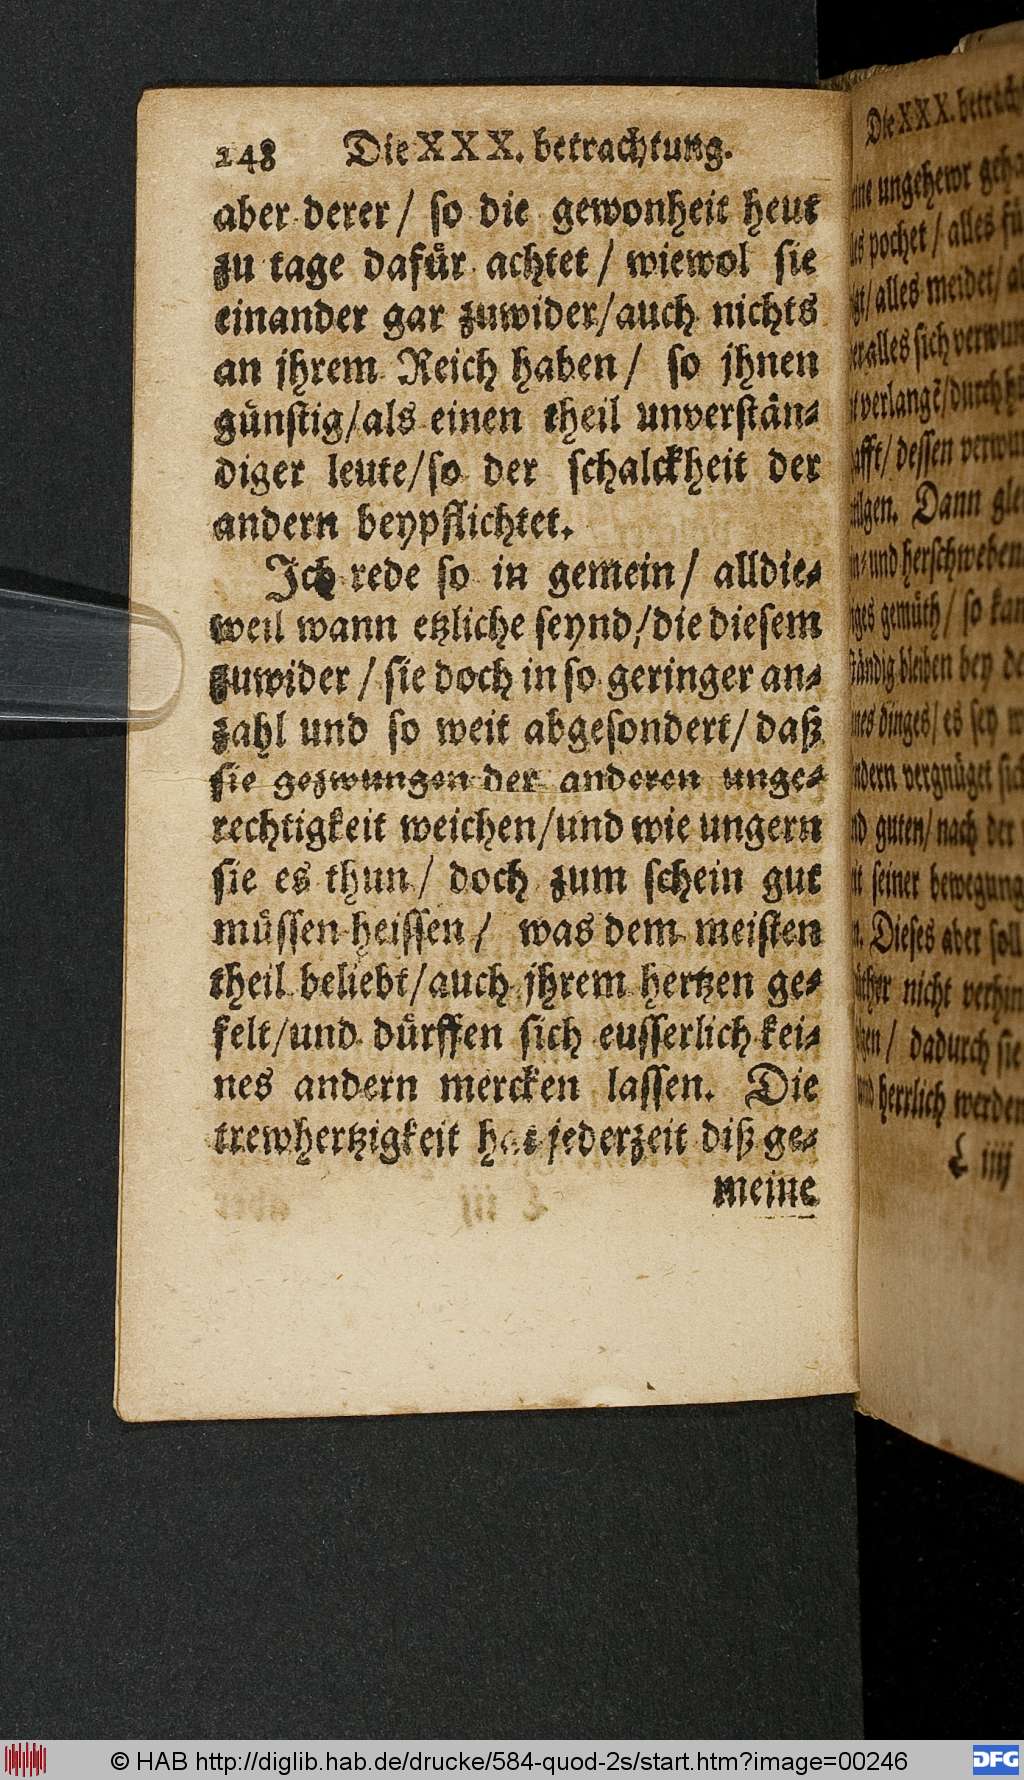 248 Die XXX. betrachtung.
aber derer / so die gewonheit heut
zu tage dafür achtet / wiewol sie
einander gar zuwider/auch nichts
an jhrem Reich haben / so jhnen
günstig/als einen theil unverstän⸗
diger leute/so der schalckheit der
andern beypflichtet.
Ich rede so in gemein / alldie⸗
weil wann etzliche seynd/die diesem
zuwider / sie doch in so geringer an⸗
zahl und so weit abgesondert/ daß
sie gezwungen der anderen unge⸗
rechtigkeit weichen/und wie ungern
sie es thun / doch zum schein gut
müssen heissen / was dem meisten
theil beliebt/auch jhrem hertzen ge⸗
felt/und dürffen sich eusserlich kei⸗
nes andern mercken lassen. Die
trewhertzigkeit hat jederzeit diß ge⸗
meine
Die XXX.
ungehewr
pochet / alles
alles meidet/
alles sich
verlangt/durch
dessen
Dann
und herschweben
gemüth / so
bleiben bey
dinges/ es sey
vergnüget
guten/ nach der
seiner bewegung
Dieses aber soll
nicht
dadurch sie
herrlich werden
L iiij
© HAB http://diglib.hab.de/drucke/584-quod-2s/start.htm?image=00246
DFG